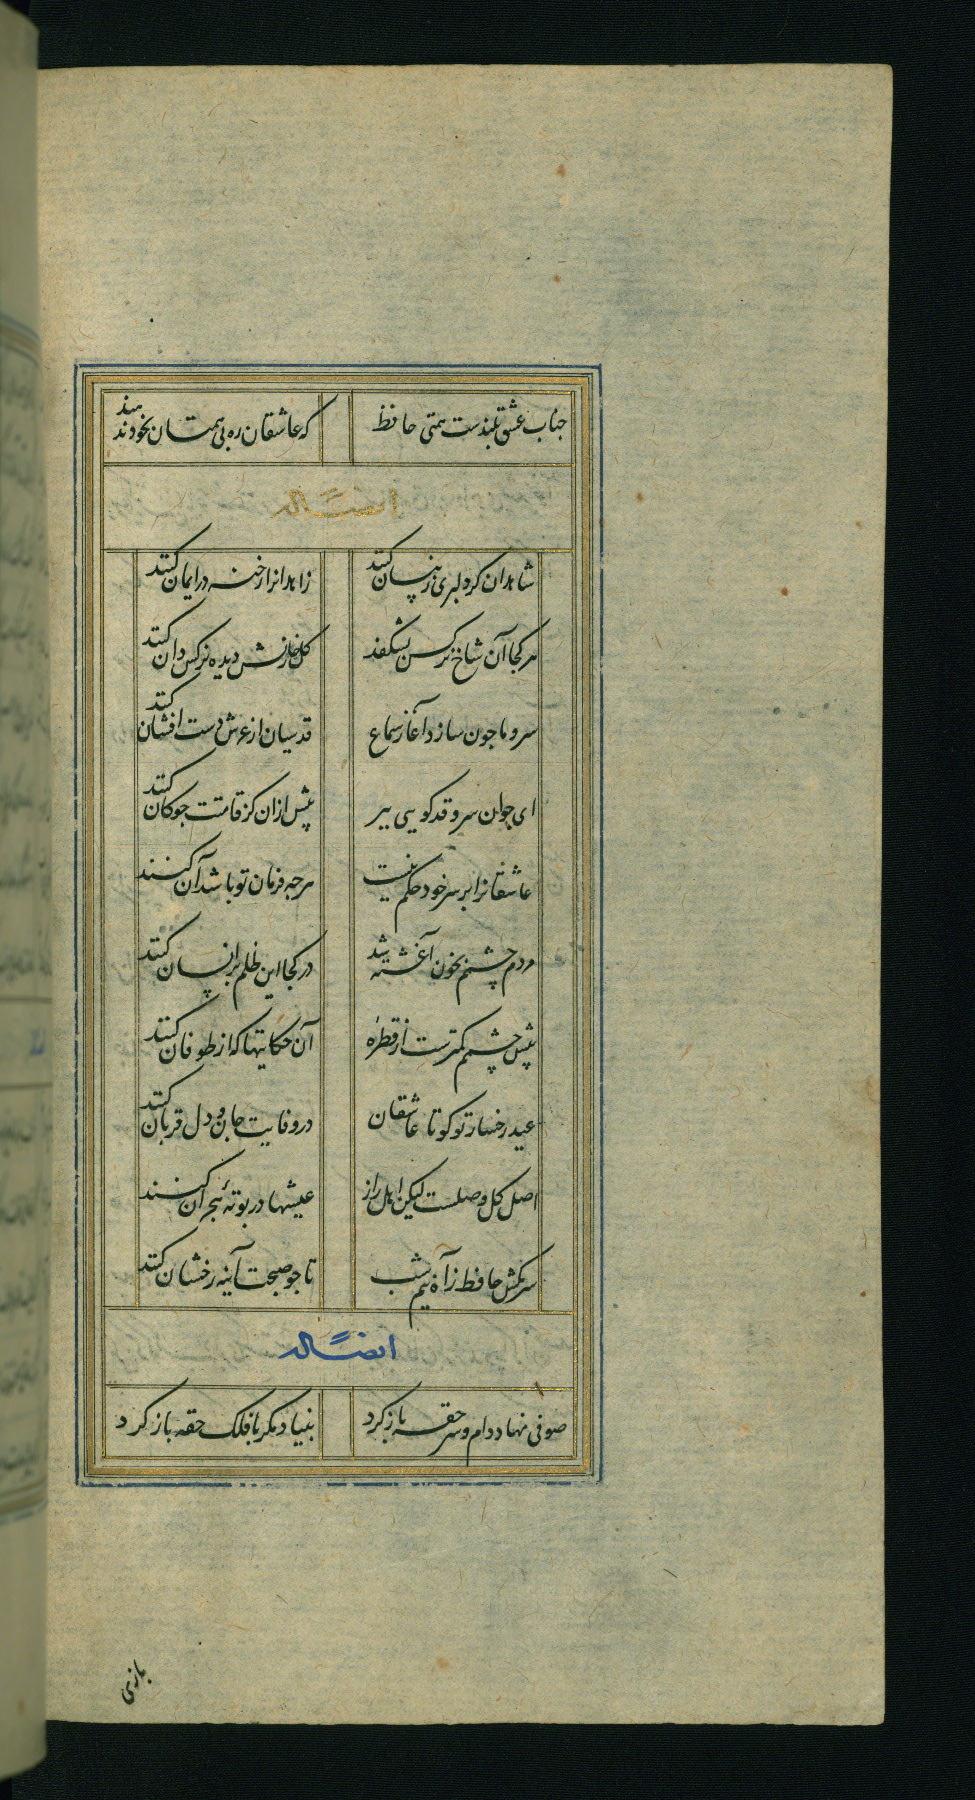 جناب عشق بلندست همتی حافظ که عاشقان ره بی همتان بخود ندهند
ایضاً له
شاهدان کر دلبری زینسان کنند زاهدانرا رخنه در ایمان کنند
هر کجا آن شاخ نرکس بشکفد کلرخانش دیده نرکس دان کنند
سرو ما جون سازد آغاز سماع قدسیان از عرش دست افشان کنند
ای جوان سرو قد کویی ببر پیش ازان کز قامتت جوکان کنند
عاشقانرا بر سر خود حکم نیست هرجه فرمان تو باشد آن کنند
مردم چشمم بخون آغشته شد در کجا این ظلم بر انسان کنند
پیش چشمم کمترست از قطرهٔ آن حکایتها که از طوفان کنند
عید رخسار تو کو تا عاشقان در وفایت جان و دل قربان کنند
اصل کل وصلست لیکن اهل راز عیشها در بوتهٔ هجران کنند
سر مکش حافظ ز آه نیم شب تا جو صبحت آینه رخشان کنند
ایضاً له
صوفی نهاد دام و سر حقه باز کرد بنیاد مکر با فلک حقه باز کرد
بازی